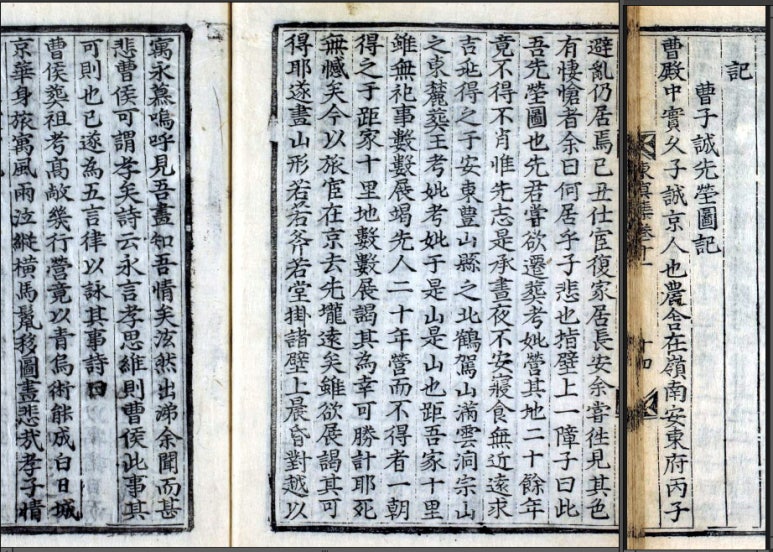 記
曹子誠先塋圖記
曹殿中實久子誠京人也農舍在嶺南安東府丙子
東皐集卷十一
十四
避亂仍居焉己丑仕宦復家居長安余嘗徃見其色
有悽愴者余曰何居乎子悲也指壁上一障子曰此
吾先塋圖也先君嘗欲遷葬考妣營其地二十餘年
竟不得不肖惟先志是承晝夜不安寢食無近遠求
吉地得之于安東豊山縣之北鶴駕山滿雲洞宗山
之東麓葬王考妣考妣于是山是山也距吾家十里
雖無祀事數數展竭先人二十年營而不得者一朝
得之于距家十里地數數展謁其為幸可勝計耶死
無憾矣今以旅宦在京去先壠遠矣雖欲展謁其可
得耶遂畫山形若若斧若堂掛諸壁上晨昏對越以
寓永慕嗚呼見吾畫知吾情矣泫然出涕余聞而甚
悲曹侯可謂孝矣詩云永言孝思維則曹侯此事其
可則也已遂為五言律以詠其事詩曰
曹侯葬祖考高敞幾行營竟以青烏術能成白日城
京華身旅寓風雨泣縱橫馬鬣移圖畫悲哉孝子情